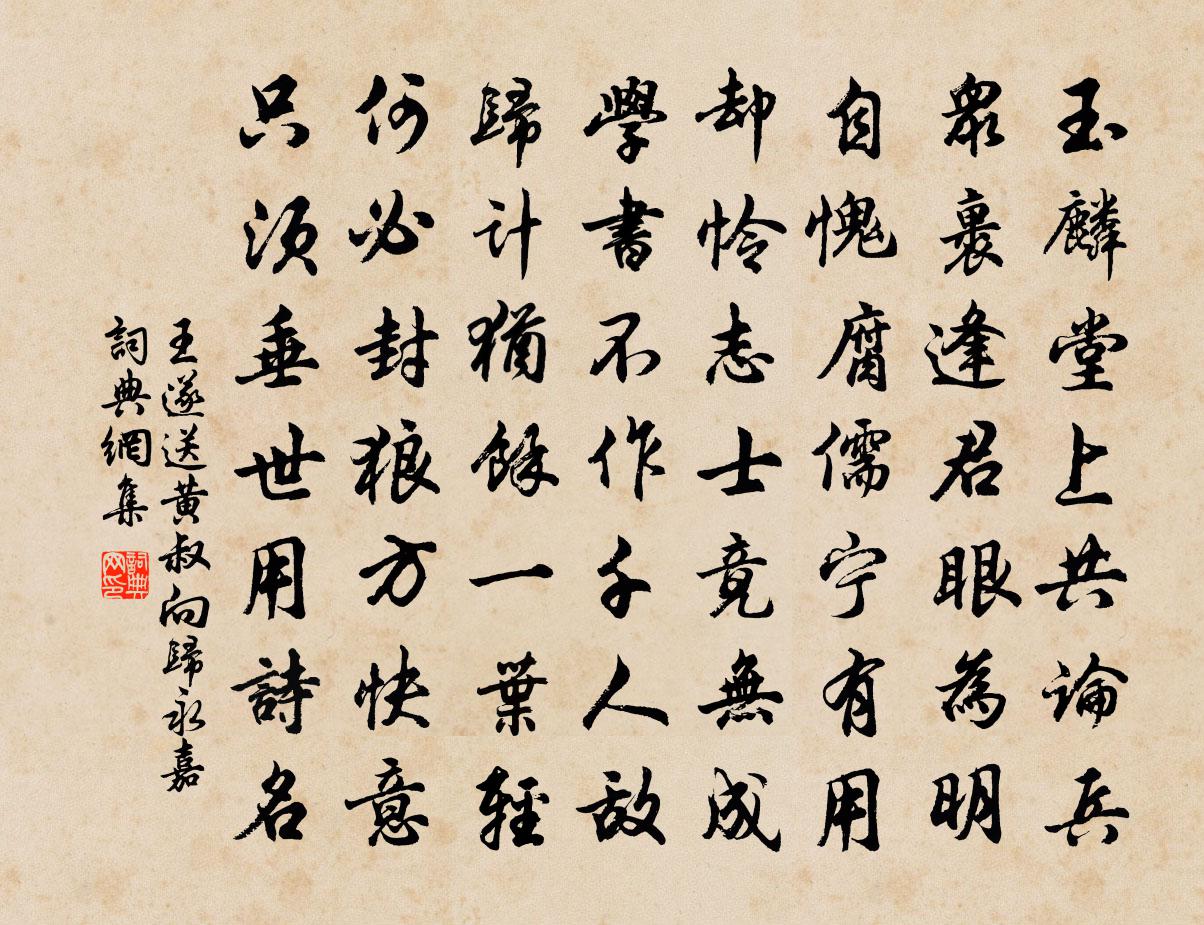 玉麟堂上共論兵
衆裏逢君眼為明
自愧腐儒宁有用
却怜志士竟無成
學書不作千人敵
歸計猶餘一葉輕
何必封狼方快意
只須垂世用詩名
王遂送黄叔向歸永嘉
詞典網集
詞典
网印